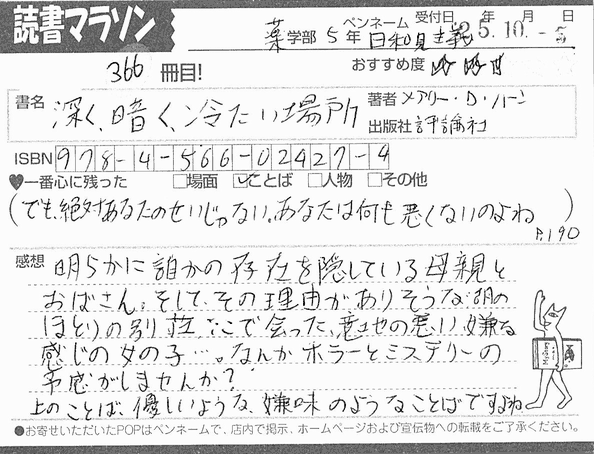 読書マラソン
薬学部 5年 ペンネーム 日和見主義 受付日 25年10月-5日
366冊目! おすすめ度
書名 深く、暗く、冷たい場所 著者 メアリー・D・ハーン
出版社 評論社
ISBN 978-4-566-02427-4
♥一番心に残った □場面 ☑ことば □人物 □その他
(でも、絶対あなたのせいじゃない。あなたは何も悪くないのよね)
P.190
感想 明らかに誰かの存在を隠している母親と
おばさん。そして、その理由がありそうな湖の
ほとりの別荘、そこで会った、意地の悪い、嫌な
感じの女の子…。なんかホラーとミステリーの
予感がしませんか?
上のことば、優しいような、嫌味のようなことばですよね
●お寄せいただいたPOPはペンネームで、店内で掲示、ホームページおよび宣伝物への転載をご了承ください。